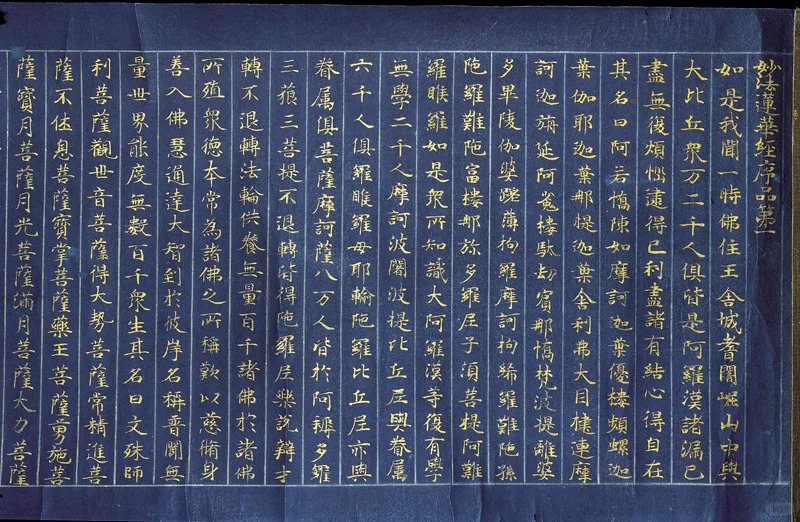 妙法蓮華經序品第一
如是我聞一時佛住王舍城耆闍崛山中與
大比丘眾万二千人俱皆是阿羅漢諸漏已
盡無復煩惱逮得己利盡諸有結心得自在
其名曰阿若憍陳如摩訶迦葉優樓頻螺迦
葉伽耶迦葉那提迦葉舍利弗大目揵連摩
訶迦旃延阿㝹樓馱劫賓那憍梵波提離婆
多畢陵伽婆蹉薄拘羅摩訶拘絺羅難陁孫
陁羅難陁富樓那弥多羅尼子湏菩提阿難
羅睺羅如是眾所知識大阿羅漢等復有學
無學二千人摩訶波闍波提比丘尼與眷属
六千人俱羅睺羅母耶輸陁羅比丘尼亦與
眷属俱菩薩摩訶薩八万人皆於阿耨多羅
三藐三菩提不退轉皆得陁羅尼樂說辯才
轉不退轉法輪供養無量百千諸佛於諸佛
所殖眾德本常為諸佛之所稱歎以慈脩身
善入佛慧通達大智到於彼岸名稱普聞無
量世界能度無數百千眾生其名曰文殊師
利菩薩觀世音菩薩得大勢菩薩常精進菩
薩不休息菩薩寶掌菩薩藥王菩薩勇施菩
薩寶月菩薩月光菩薩滿月菩薩大力菩薩